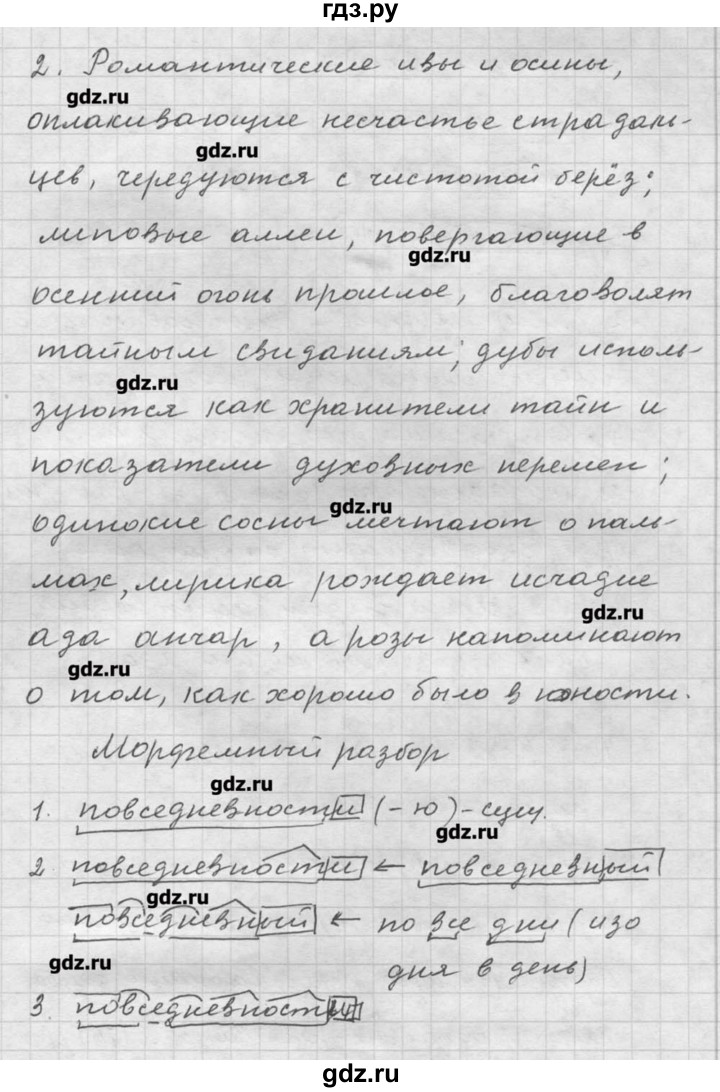 гдз.ру
2. Романтические ивы и осины,
gdz.ru
оплакивающие несчастье страдаль-
gdz.ru
цев, чередуются с чистотой берёз;
липовые аллеи, повергающие в
gdz.ru
осенний огонь прошлое, благоволят
тайным свиданиям; дубы исполь-
gdz.ru
зуются как хранители тайн и
показатели духовных перемен;
gdz.ru
одинокие сосны мечтают о паль-
мах, лирика рождает исчадие
gdz.ru
ада анчар, а розы напоминают
gdz.ru
о том, как хорошо было в юности.
Морфемный разбор
gdz.ru
1. повседневности (-ю) - сущ.
gdz.ru
2 повседневности ← повседневный
gdz.ru
повседневный ← по все дни (изо
gdz.ru
дня в день)
3. повседневности
gdz.ru